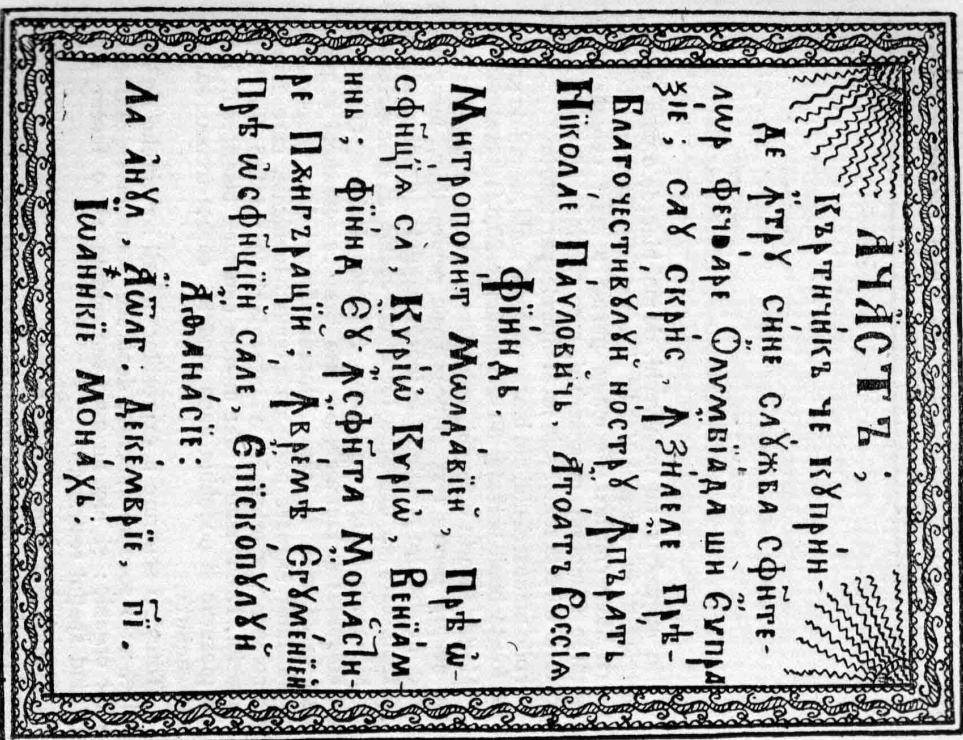 АЧѦСТЪ,
Кърти́чикъ че кꙋпри́н-
де ꙟ҆трꙋ̀ си́не слꙋ́жба сфн҃те-
лѡр фечѡаре Ѻлѵмбїада ши Еѵпра
ѯїе; саꙋ скри́с, ꙟ҆ зи́леле прѣ-
Благочести́вꙋлꙋй нострꙋ ꙟ҆пъра́тъ
Нїкола́е Па́ѵловичь, Ато́атъ Рѡссі́а
Фїи́ндь.
Митрополи́т Мѡлда́вїей, Прѣ ѡ҆-
сфн҃цїѧ са̀, Кѵрі́ѡ Кѵрі́ѡ, Венїами́н-
нь; фїи́нд Еꙋ ꙟ҆ сфн҃та Монасти-
ре Пѫнгъра́цїй, ꙟ҆ вре́мѣ Егꙋме́нїей
Прѣ ѡ҆сфн҃цїей сале, Епїско́пꙋлꙋй
Аѳана́сїе:
Ла а҆нꙋл, ҂аѡлг. Деке́мврїе, гі.
Їѡанни́кїе Мона́хь: